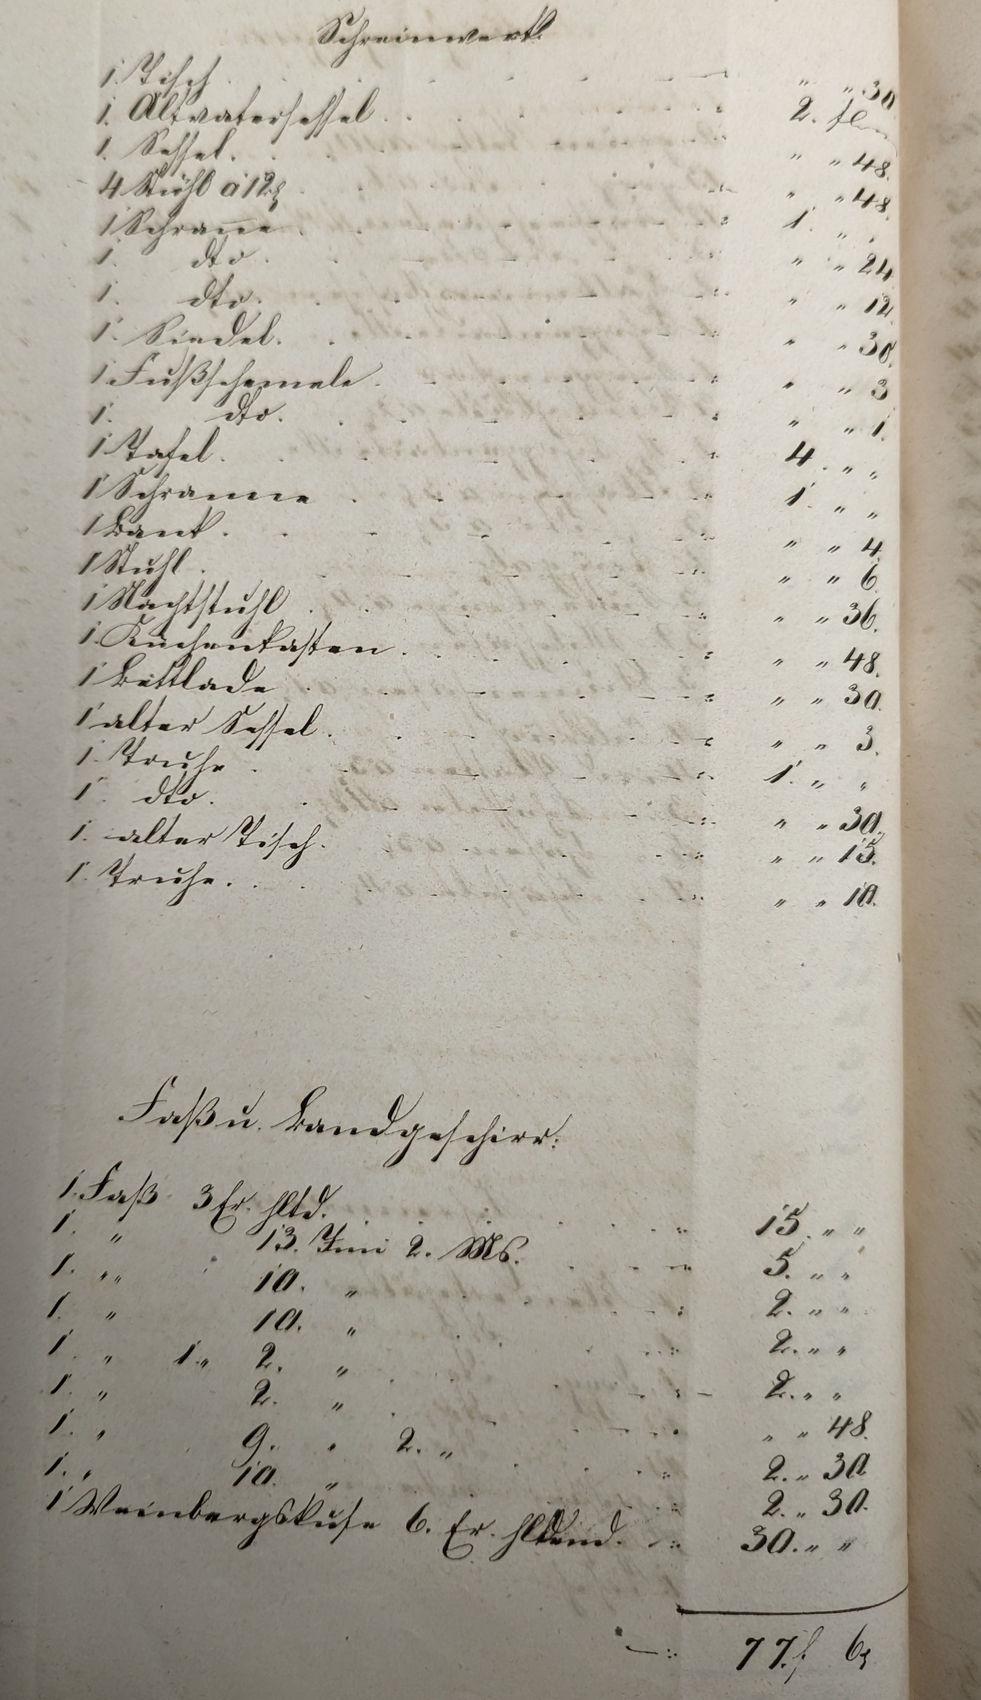 Schreinwerk.
1. Tisch . . . " " 30
1. Altvatersessel . . . 2. fl
1. Sessel. . . . " " 48.
4 Stühl a 12 x . . . " " 48.
1 Schrane . . . 1. " "
1. dto . . . " " 24
1. dto. . . . " " 12
1. Siedel. . . . " " 30.
1 Fußschemele . . . " " 3
1. dto. . . . " " 1.
1 Tafel. . . . 4. " "
1 Schranne . . . 1. " "
1 Bank. . . . " " 4
1 Stuhl . . . " " 6
1 Nachtstuhl . . . " " 36.
1. Küchenkasten . . . " " 48.
1 Bettlade . . . " " 30.
1 alter Sessel. . . . " " 3.
1. Truhe . . . 1. " "
1. dto. . . . " " 30.
1. alter Tisch. . . . " " 15.
1. Truhe. . . . " " 10.
Faß u. Bandgeschirr:
1. Faß 3 Er. hltd. . . . 15. " "
1. " 13. Imi 2. Ms. . . . 5. " "
1. " 10. " . . . 2. " "
1. " 10. " . . . 2. " "
1. " 1. " 2. " . . . 2. " "
1. " 2. " . . . " " 48.
1. " 9. " 2. " . . . 2. " 30
1. " 10. " . . . 2. " 30.
1 Weinbergskufe 6. Er. hltend. . . . 30. " "
77. f 6 x